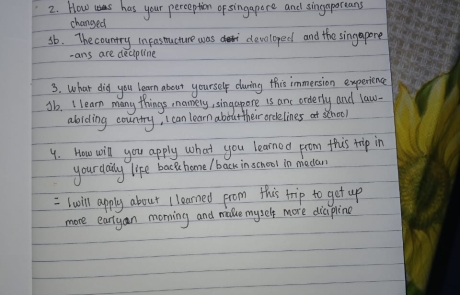 2. How was has your perception of singapore and singaporeans
changed
Jb. The country infastructure was developed and the singapore
-ans are decipline
3. What did you learn about yourself during this immersion experience
Jb. I learn many things, namely, singapore is an orderly and law-
abiding country, i can learn about their at school
4. How will you apply what you learned from this trip in
your daily life back home/back in school in medan
= I will apply about I learned from this trip to get up
more early morning and make myself more dicipline